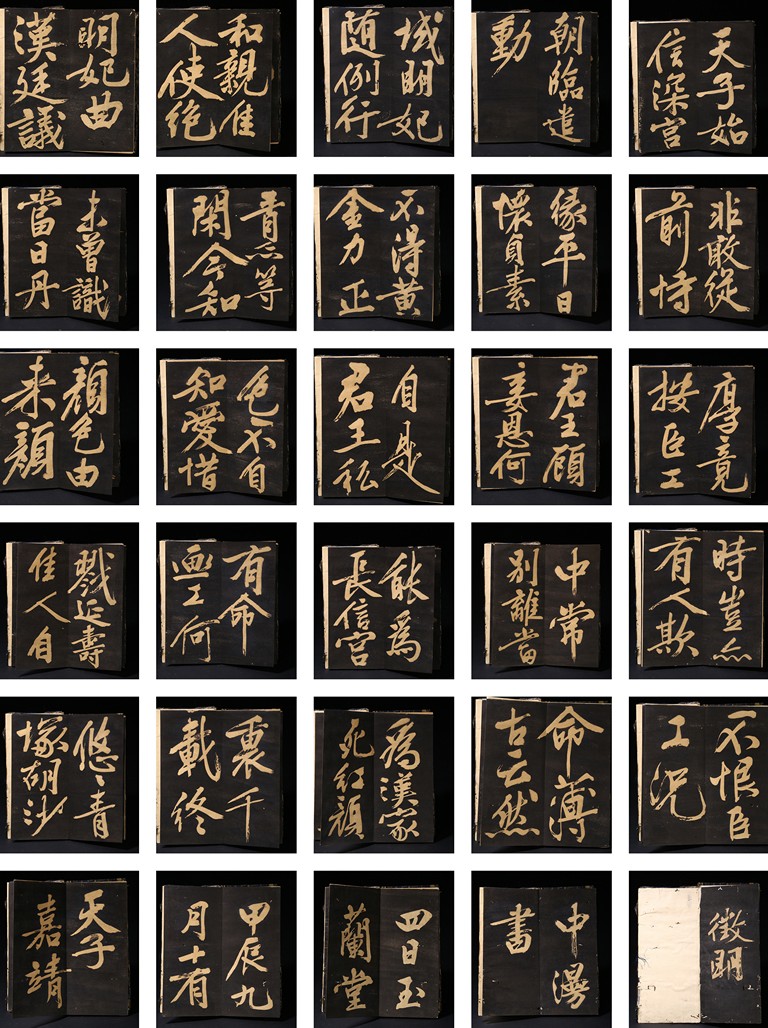 明妃曲
漢廷議
和親佳
人使絶
域明妃
随例行
朝臨遣
動
天子始
信深宮
未曾識
當日丹
青亦等
閑今知
不得黄
金力正
縁平日
懷貞素
非敢從
前恃
顔色由
来顔
色不自
知愛惜
自是
君王私
君王顧
妾恩何
厚竟
按臣工
戮延壽
佳人自
有命
画工何
能爲
長信宮
中常
別離當
時豈亦
有人欺
悠々青
塚胡沙
裏千
載終
爲漢家
死紅顔
命薄
古云然
不恨臣
工況
天子
嘉靖
甲辰九
月十有
四日玉
蘭堂
中漫
書
徴明